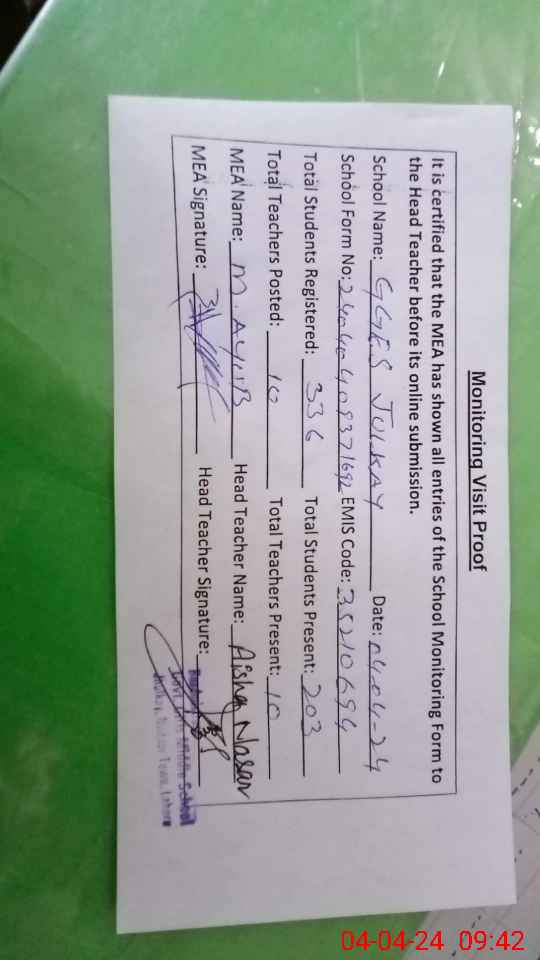 Monitoring Visit Proof
It is certified that the MEA has shown all entries of the School Monitoring Form to
the Head Teacher before its online submission.
School Name: GGES JULKAY Date: 04-04-24
School Form No: 24040409371692 EMIS Code: 35210694
Total Students Registered: 336 Total Students Present: 203
Total Teachers Posted: 10 Total Teachers Present: 10
MEA Name: M. AYUB Head Teacher Name: Aisha Nasar
MEA Signature: Head Teacher Signature:
Middle School
Town, Lahore
04-04-24 09:42